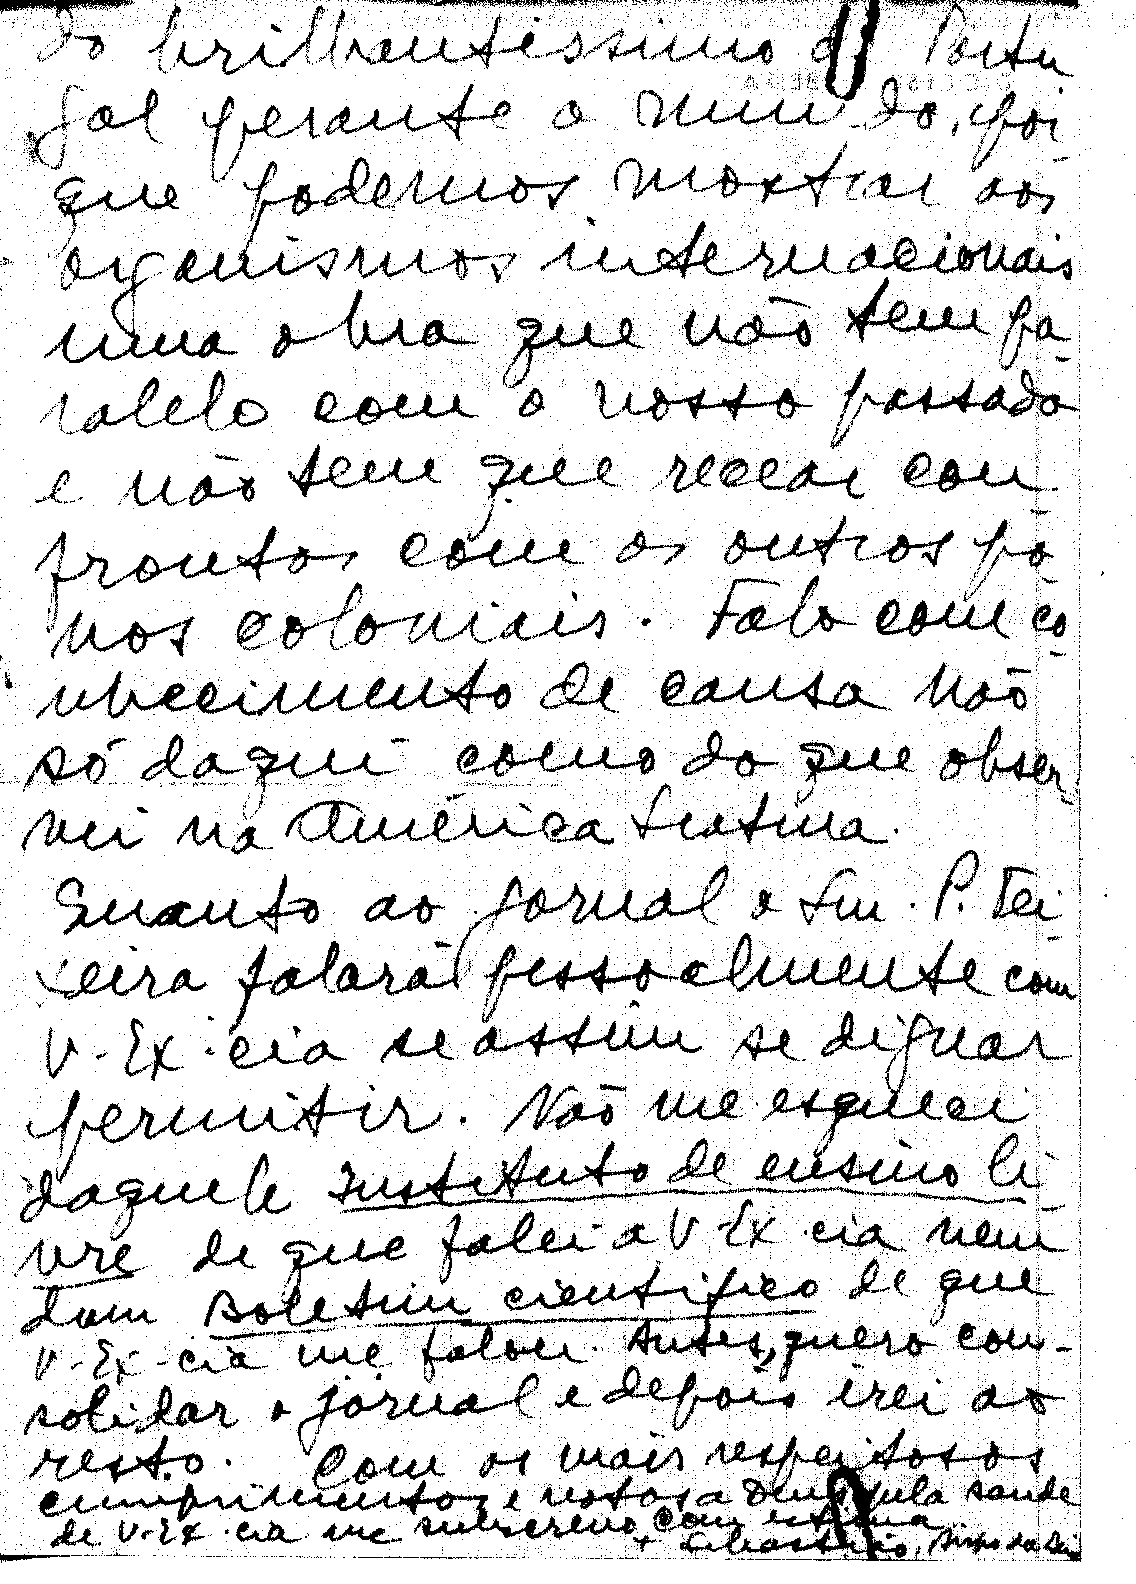 do brilhantissimo de Portu
gal perante o mundo, por
que podemos mostrar aos
organismos internacionais
uma obra que não tem pa-
ralelo com o nosso passado
e não tem que recear con-
frontos com os outros po-
vos coloniais. Falo com co-
nhecimento de causa não
só daqui como do que obser-
vei na América Latina.
Quanto ao jornal o Snr. P. Tei-
xeira falará pessoalmente com
V. Ex.cia se assim se dignar
permitir. Não me esqueci
daquele Instituto de ensino li-
vre de que falei a V. Ex.cia nem
dum Boletim cientifico de que
V. Ex.cia me falou. Antes, quero con-
solidar o jornal e depois irei ao
resto. Com os mais respeitosos
cumprimentos e votos a Deus pela saude
de V. Ex.cia me subscrevo com estima
+ Sebastião, Bispo da Beira